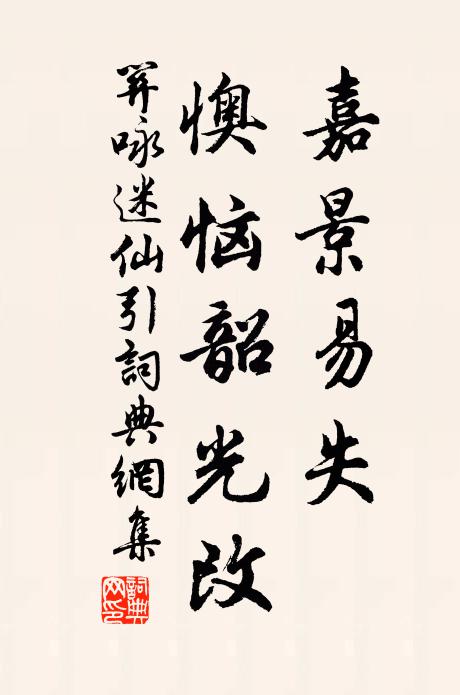 嘉景易失
懊恼韶光改
羿咏迷仙引詞典網集
詞典网印